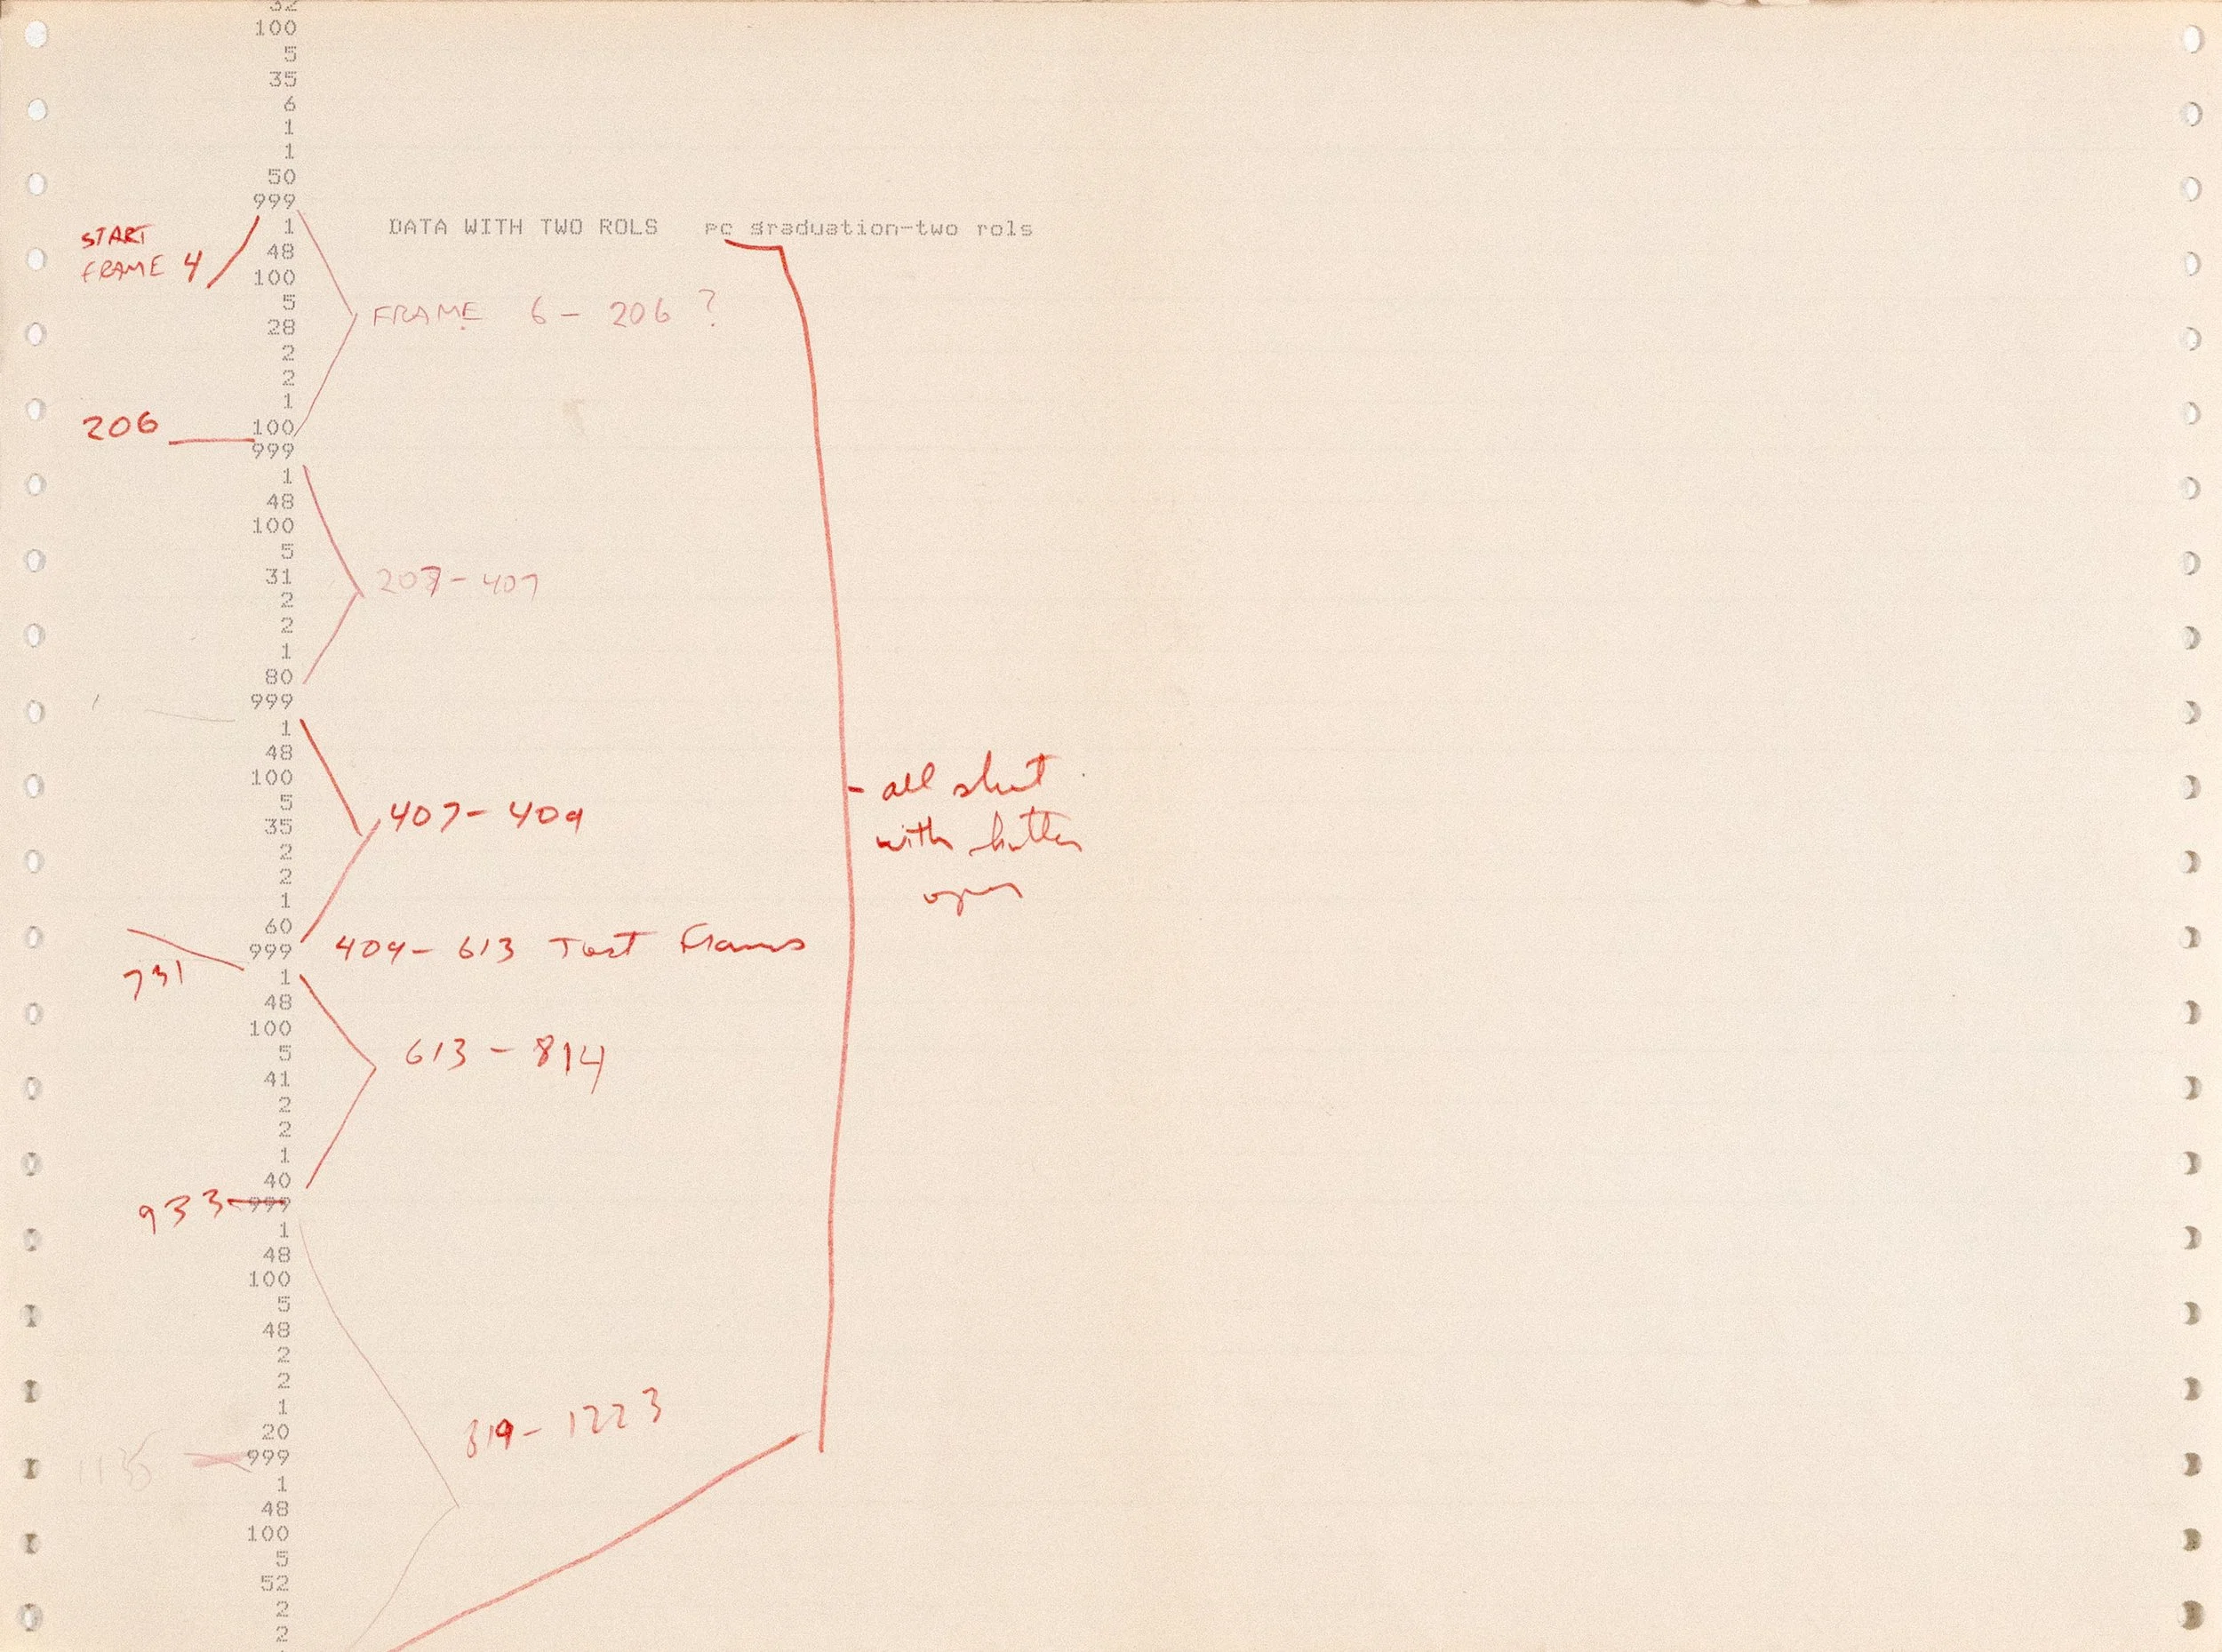 32
100
5
35
6
1
1
50
999
1 DATA WITH TWO ROLS pc graduation-two rols
START
FRAME 4
48
100
5
FRAME 6 - 206 ?
28
2
2
1
206
100
999
1
48
100
5
31
207 - 407
2
2
1
80
999
1
48
100
- all shot
5
407 - 409
35
with
2
2
open
1
60
999 409 - 613 Test Frames
731
1
48
100
5
613 - 814
41
2
2
1
40
933
999
1
48
100
5
48
2
2
1
819 - 1223
20
1135
999
1
48
100
5
52
2
2